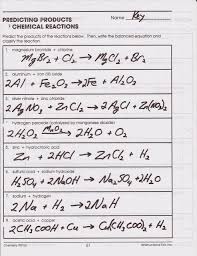 PREDICTING PRODUCTS
CHEMICAL REACTIONS
Name Key
Predict the products of the reactions below. Then, write the balanced equation and
classify the reaction.
1. magnesium bromide + chlorine
MgBr₂ + Cl₂ → MgCl₂ + Br₂
2. aluminum + iron (III) oxide
2Al + Fe₂O₃ → 2Fe + Al₂O₃
3. silver nitrate + zinc chloride
2AgNO₃ + ZnCl₂ → 2AgCl + Zn(NO₃)₂
4. hydrogen peroxide (catalyzed by manganese dioxide)
2H₂O₂ MnO₂ → 2H₂O + O₂
5. zinc + hydrochloric acid
Zn + 2HCl → ZnCl₂ + H₂
6. sulfuric acid + sodium hydroxide
H₂SO₄ + 2NaOH → Na₂SO₄ + 2H₂O
7. sodium + hydrogen
2Na + H₂ → 2NaH
8. acetic acid + copper
Cu → Cu(CH₃COO)₂ + H₂
Chemistry IF8766
61